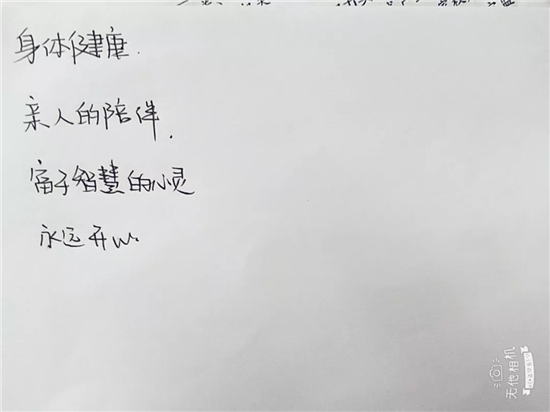 身体健康.
亲人的陪伴.
富于智慧的心灵
永远开心
无他相机